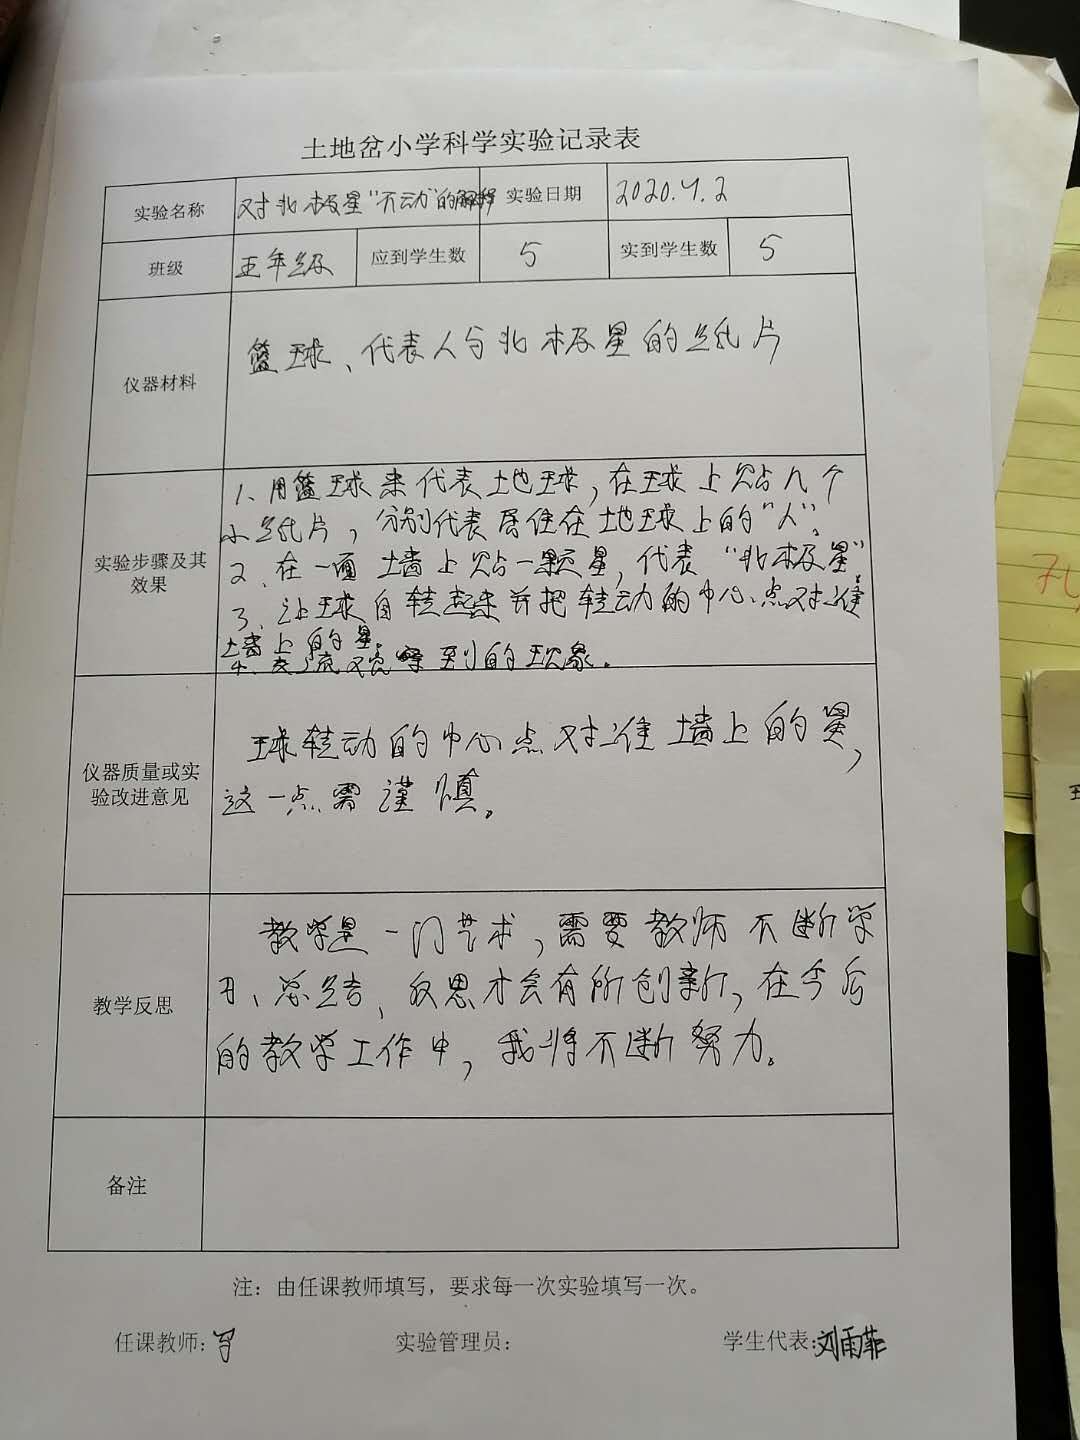 土地岔小学科学实验记录表
实验名称 对北极星“不动”的解释 实验日期 2020.4.2
班级 五年级 应到学生数 5 实到学生数 5
仪器材料 篮球、代表人与北极星的纸片
实验步骤及其效果
1、用篮球来代表土地球，在球上贴几个
小纸片，分别代表居住在地球上的“人”。
2、在一面墙上贴一颗星，代表“北极星”
3、让球自转起来并把转动的中心点对准
墙上的星。
4、交流观察到的现象。
仪器质量或实验改进意见
球转动的中心点对准墙上的星，
这一点需谨慎。
教学反思
教学是一门艺术，需要教师不断学
习、总结、反思才会有所创新，在今后
的教学工作中，我将不断努力。
备注
注：由任课教师填写，要求每一次实验填写一次。
任课教师： 实验管理员： 学生代表：刘雨菲